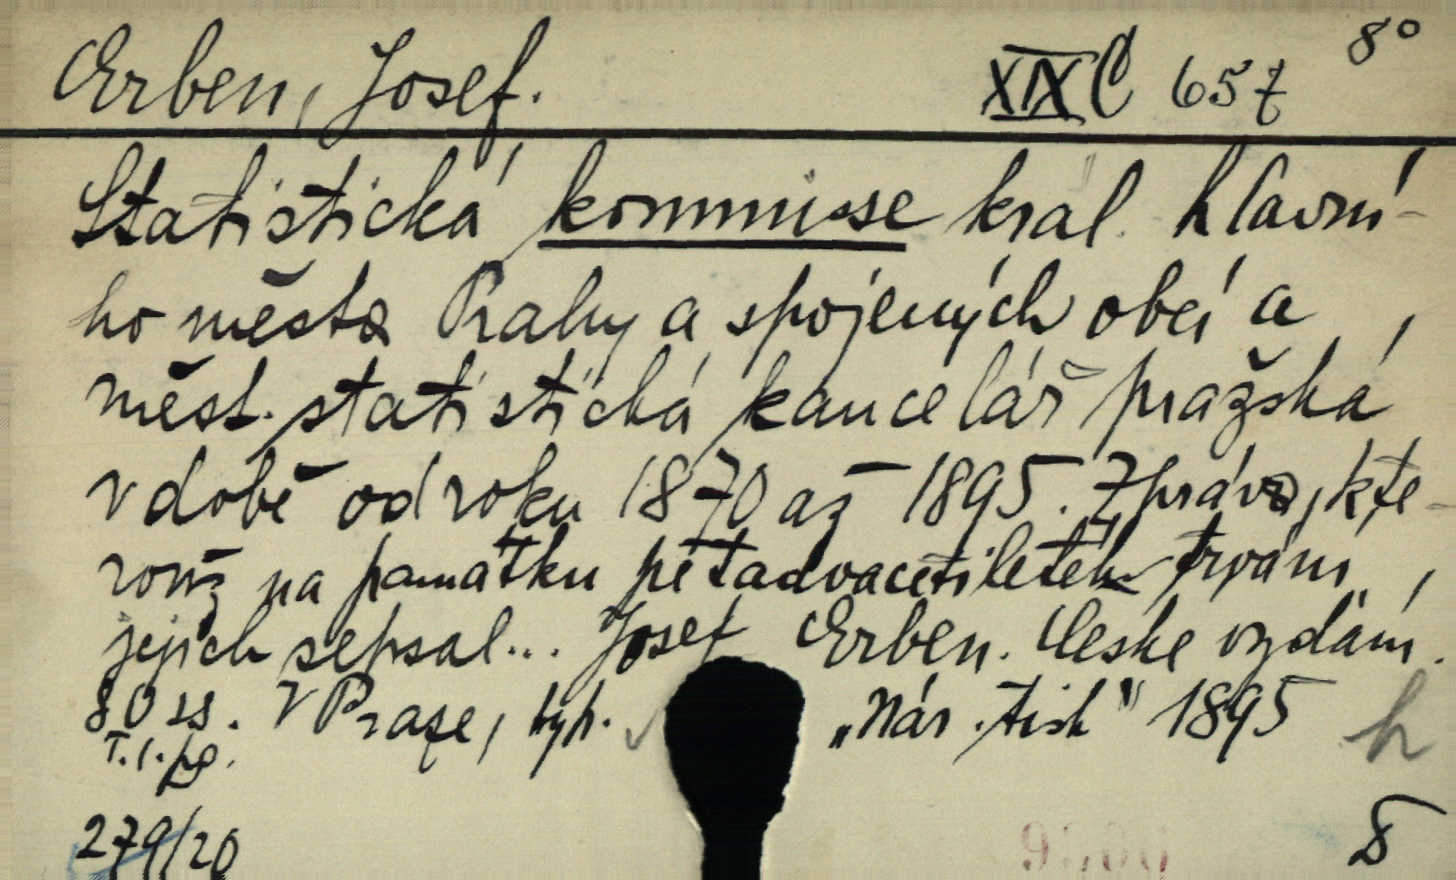 Erben, Josef. XIX C 657 8°
Statistická kommisse král. hlavní-
ho města Prahy a spojených obcí a
měst. statistická kancelář pražská
v době od roku 1870 až 1895. Zpráva, kte-
rouž na památku pětadvacetiletého trvání
jejich sepsal... Josef Erben. České vydání.
80 ss. V Praze, typ. „Nár. tisk" 1895 h
279/20